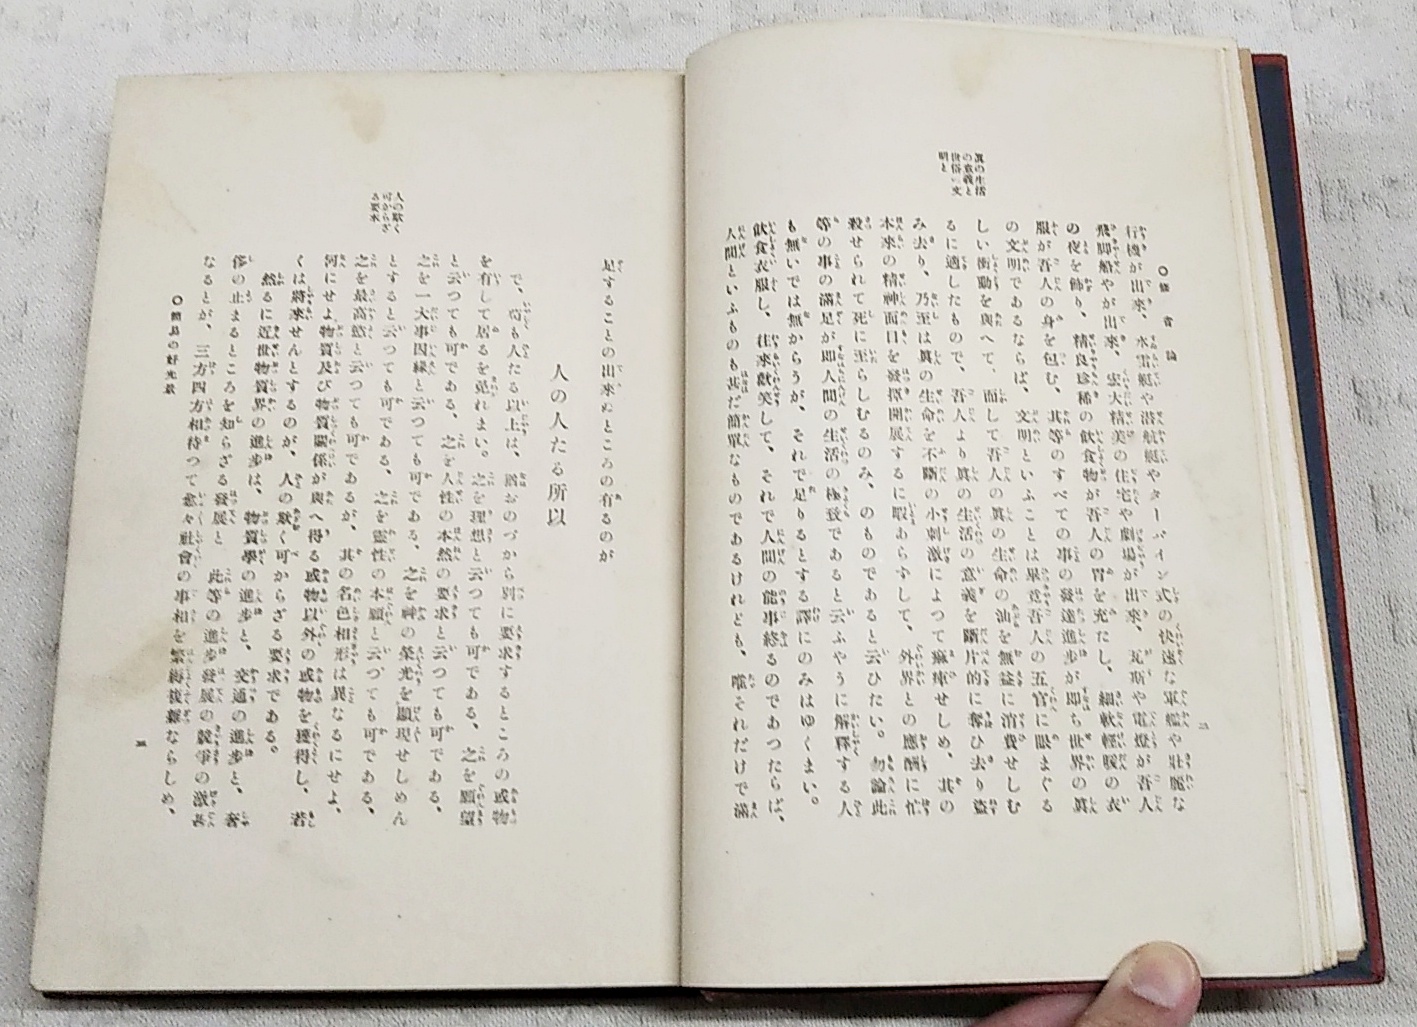 ○修省論
二
眞の生活
の意義と
世俗の文
明と
行機が出來、水雷艇や潜航艇やターバイン式の快速な軍艦や壯麗な
飛脚船やが出來、宏大精美の住宅や劇場が出來、瓦斯や電燈が吾人
の夜を飾り、精良珍稀の飲食物が吾人の胃を充たし、細軟輕暖の衣
服が吾人の身を包む、其等のすべての事の發達進步が即ち世界の眞
の文明であるならば、文明といふことは畢竟吾人の五官に眼まぐる
しい衝動を與へて、而して吾人の眞の生命の油を無益に消費せしむ
るに適したもので、吾人より眞の生活の意義を斷片的に奪ひ去り盜
み去り、乃至は眞の生命を不斷の小刺激によつて痲痺せしめ、其の
本來の精神面目を發揮開展するに暇あらずして、外界との應酬に忙
殺せられて死に至らしむるのみ、のものであると云ひたい。勿論此
等の事の滿足が即人間の生活の極致であると云ふやうに解釋する人
も無いでは無からうが、それで足りるとする譯にのみはゆくまい。
飲食衣服し、往來歡笑して、それで人間の能事終るのであつたらば、
人間といふものも甚だ簡單なものであるけれども、唯それだけで滿
足することの出來ぬところの有るのが
人の人たる所以
で、苟も人たる以上は、猶おのづから別に要求するところの或物
を有して居るを免れまい。之を理想と云つても可である、之を願望
と云つても可である、之を人性の本然の要求と云つても可である、
之を一大事因緣と云つても可である、之を神の榮光を顯現せしめん
とすると云つても可である、之を靈性の本願と云つても可である、
之を最高慾と云つても可であるが、其の名色相形は異なるにせよ、
何にせよ物質及び物質關係が與へ得る或物以外の或物を獲得し、若
くは將來せんとするのが、人の歇く可からざる要求である。
人の歇く
可からざ
る要求
然るに近世物質界の進步は、物質學の進步と、交通の進步と、奢
侈の止まるところを知らざる發展と、此等の進步發展の競爭の激甚
なるとが、三方四方相待つて愈々社會の事相を繁縟複雜ならしめ、
○簡易の好光景
三